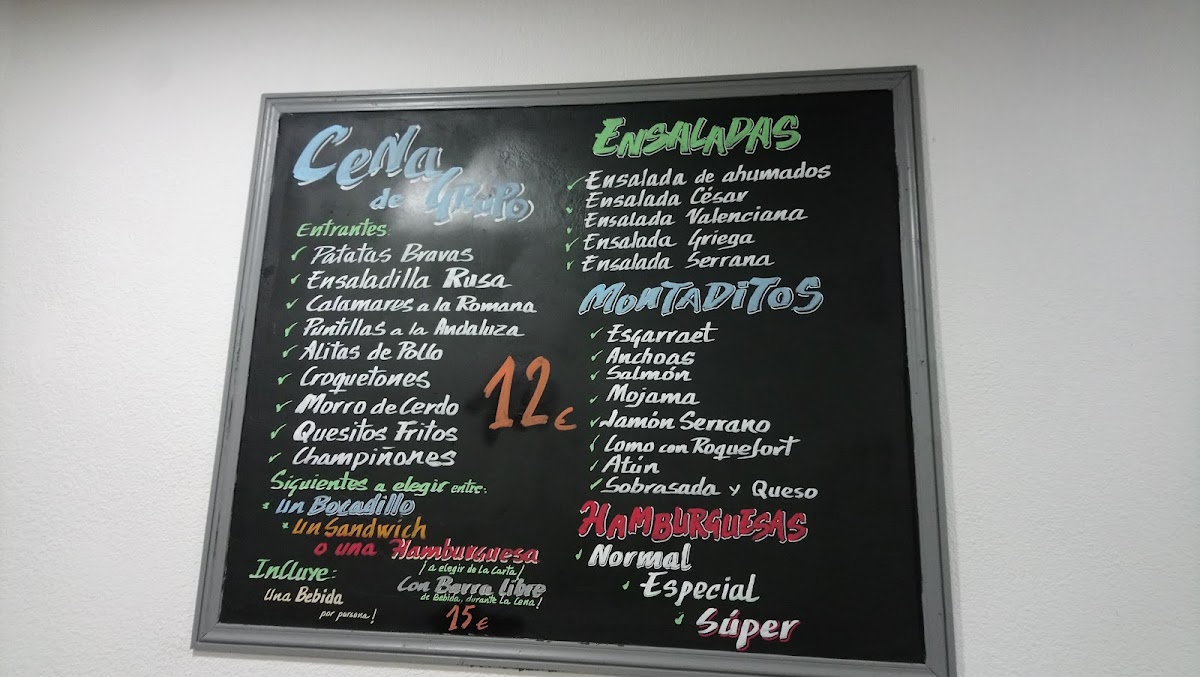 Cena
de Grupo
Entrantes:
Patatas Bravas
Ensaladilla Rusa
Calamares a la Romana
Puntillas a la Andaluza
Alitas de Pollo
Croquetones
Morro de Cerdo
Quesitos Fritos
Champiñones
12€
Siguientes a elegir entre:
* un Bocadillo
* un Sandwich
o una Hamburguesa
¡a elegir de la Carta!
Incluye:
una Bebida
por persona!
Con Barra libre
de Bebida, durante la Cena!
15€
ENSALADAS
Ensalada de ahumados
Ensalada César
Ensalada Valenciana
Ensalada Griega
Ensalada Serrana
MONTADITOS
Esgarraet
Anchoas
Salmón
Mojama
Jamón Serrano
Lomo con Roquefort
Atún
Sobrasada y Queso
HAMBURGUESAS
Normal
Especial
Súper